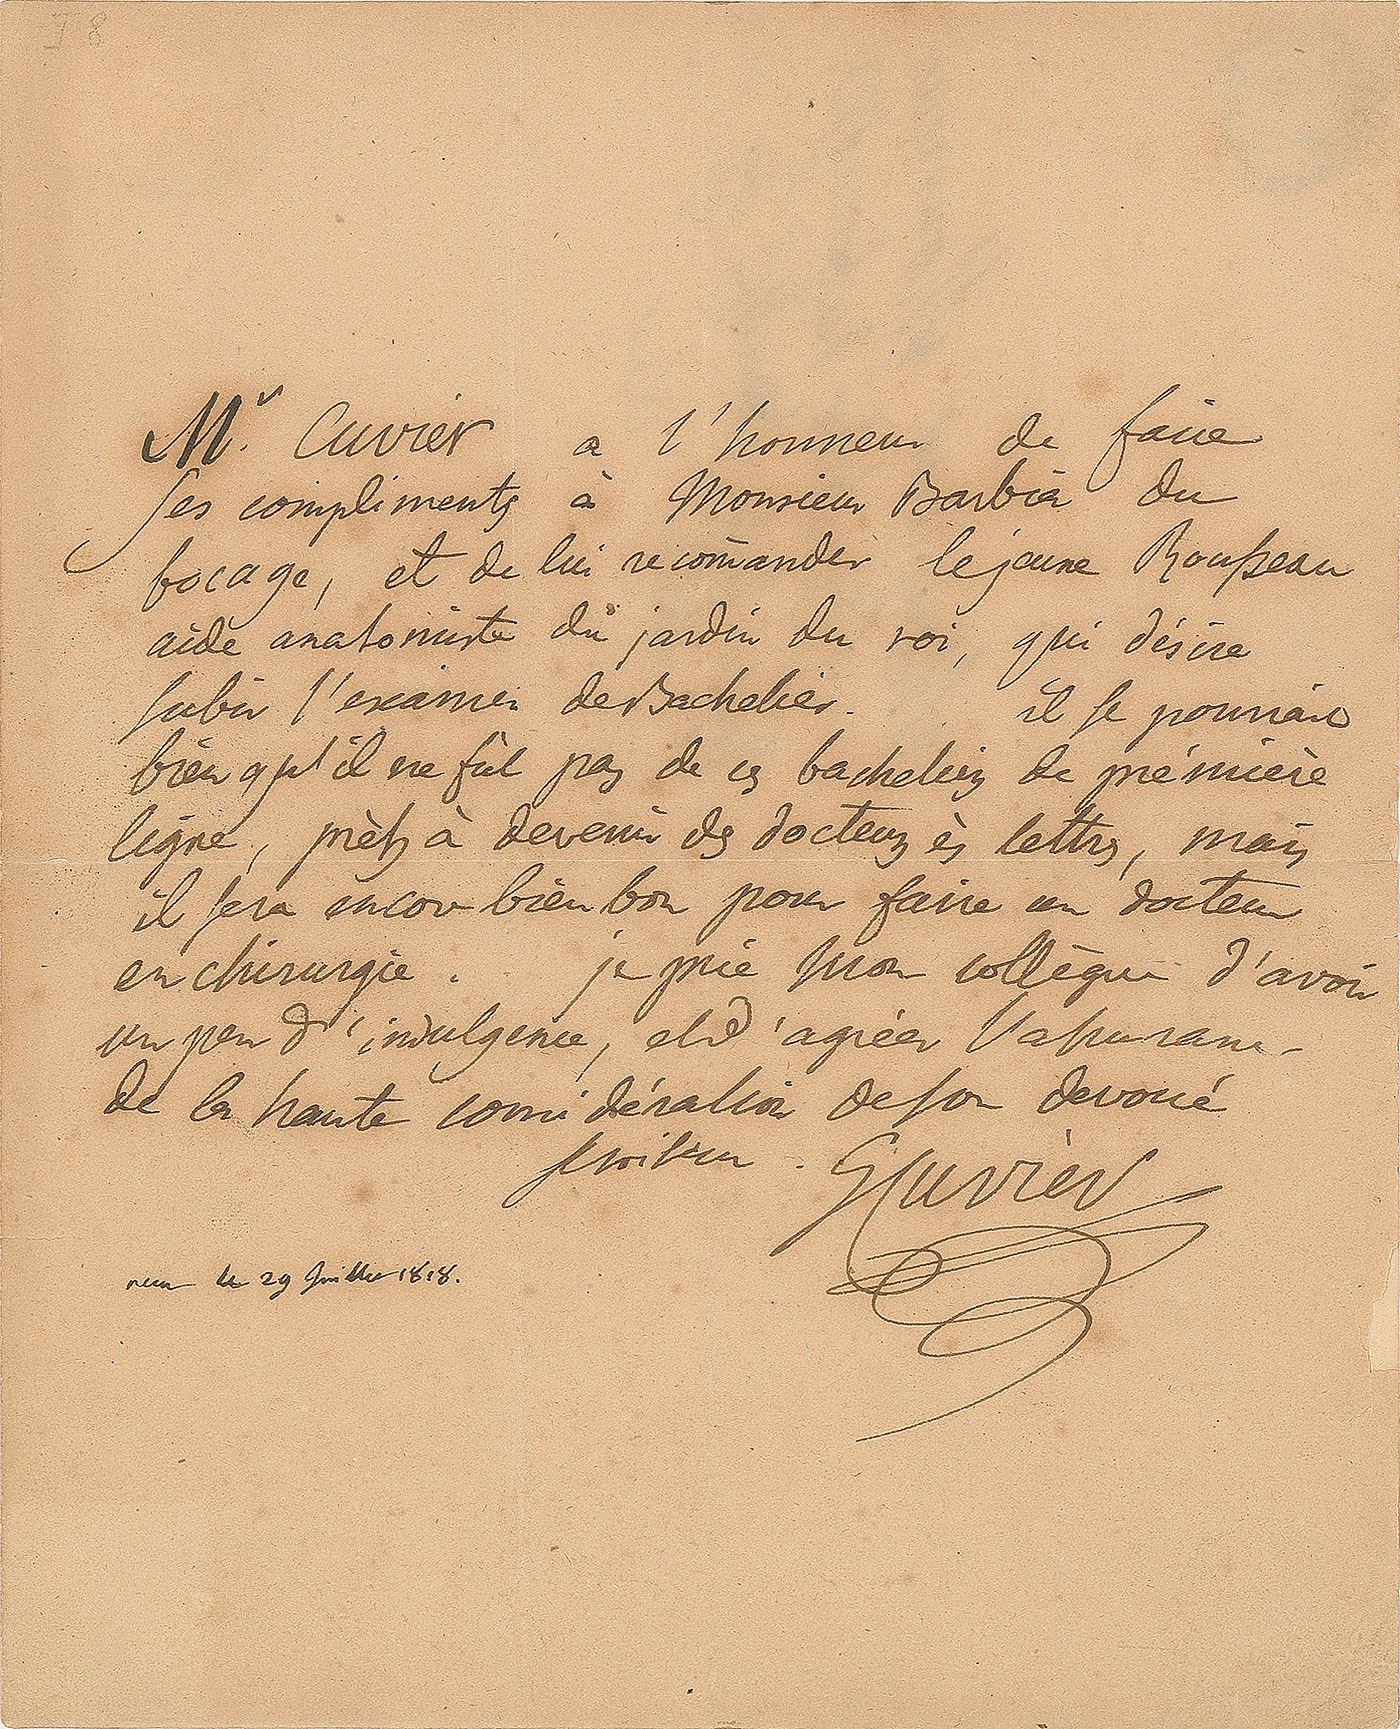 J 8
Mr. Cuvier a l'honneur de faire
ses compliments à Monsieur Barbié du
bocage, et de lui recomander le jeune Rousseau
aide anatomiste du jardin du roi, qui désire
subir l'examen de Bachelier. il se pourrait
bien qu'il ne fût pas de ces bacheliers de prémière
ligne, prêts à devenir des docteurs ès lettres, mais
il sera encore bien bon pour faire un docteur
en chirurgie. je prie mon collègue d'avoir
un peu d'indulgence, et d'agréer l'assurance
de la haute considération de son devoué
serviteur. G Cuvier
recu le 29 Juillet 1818.